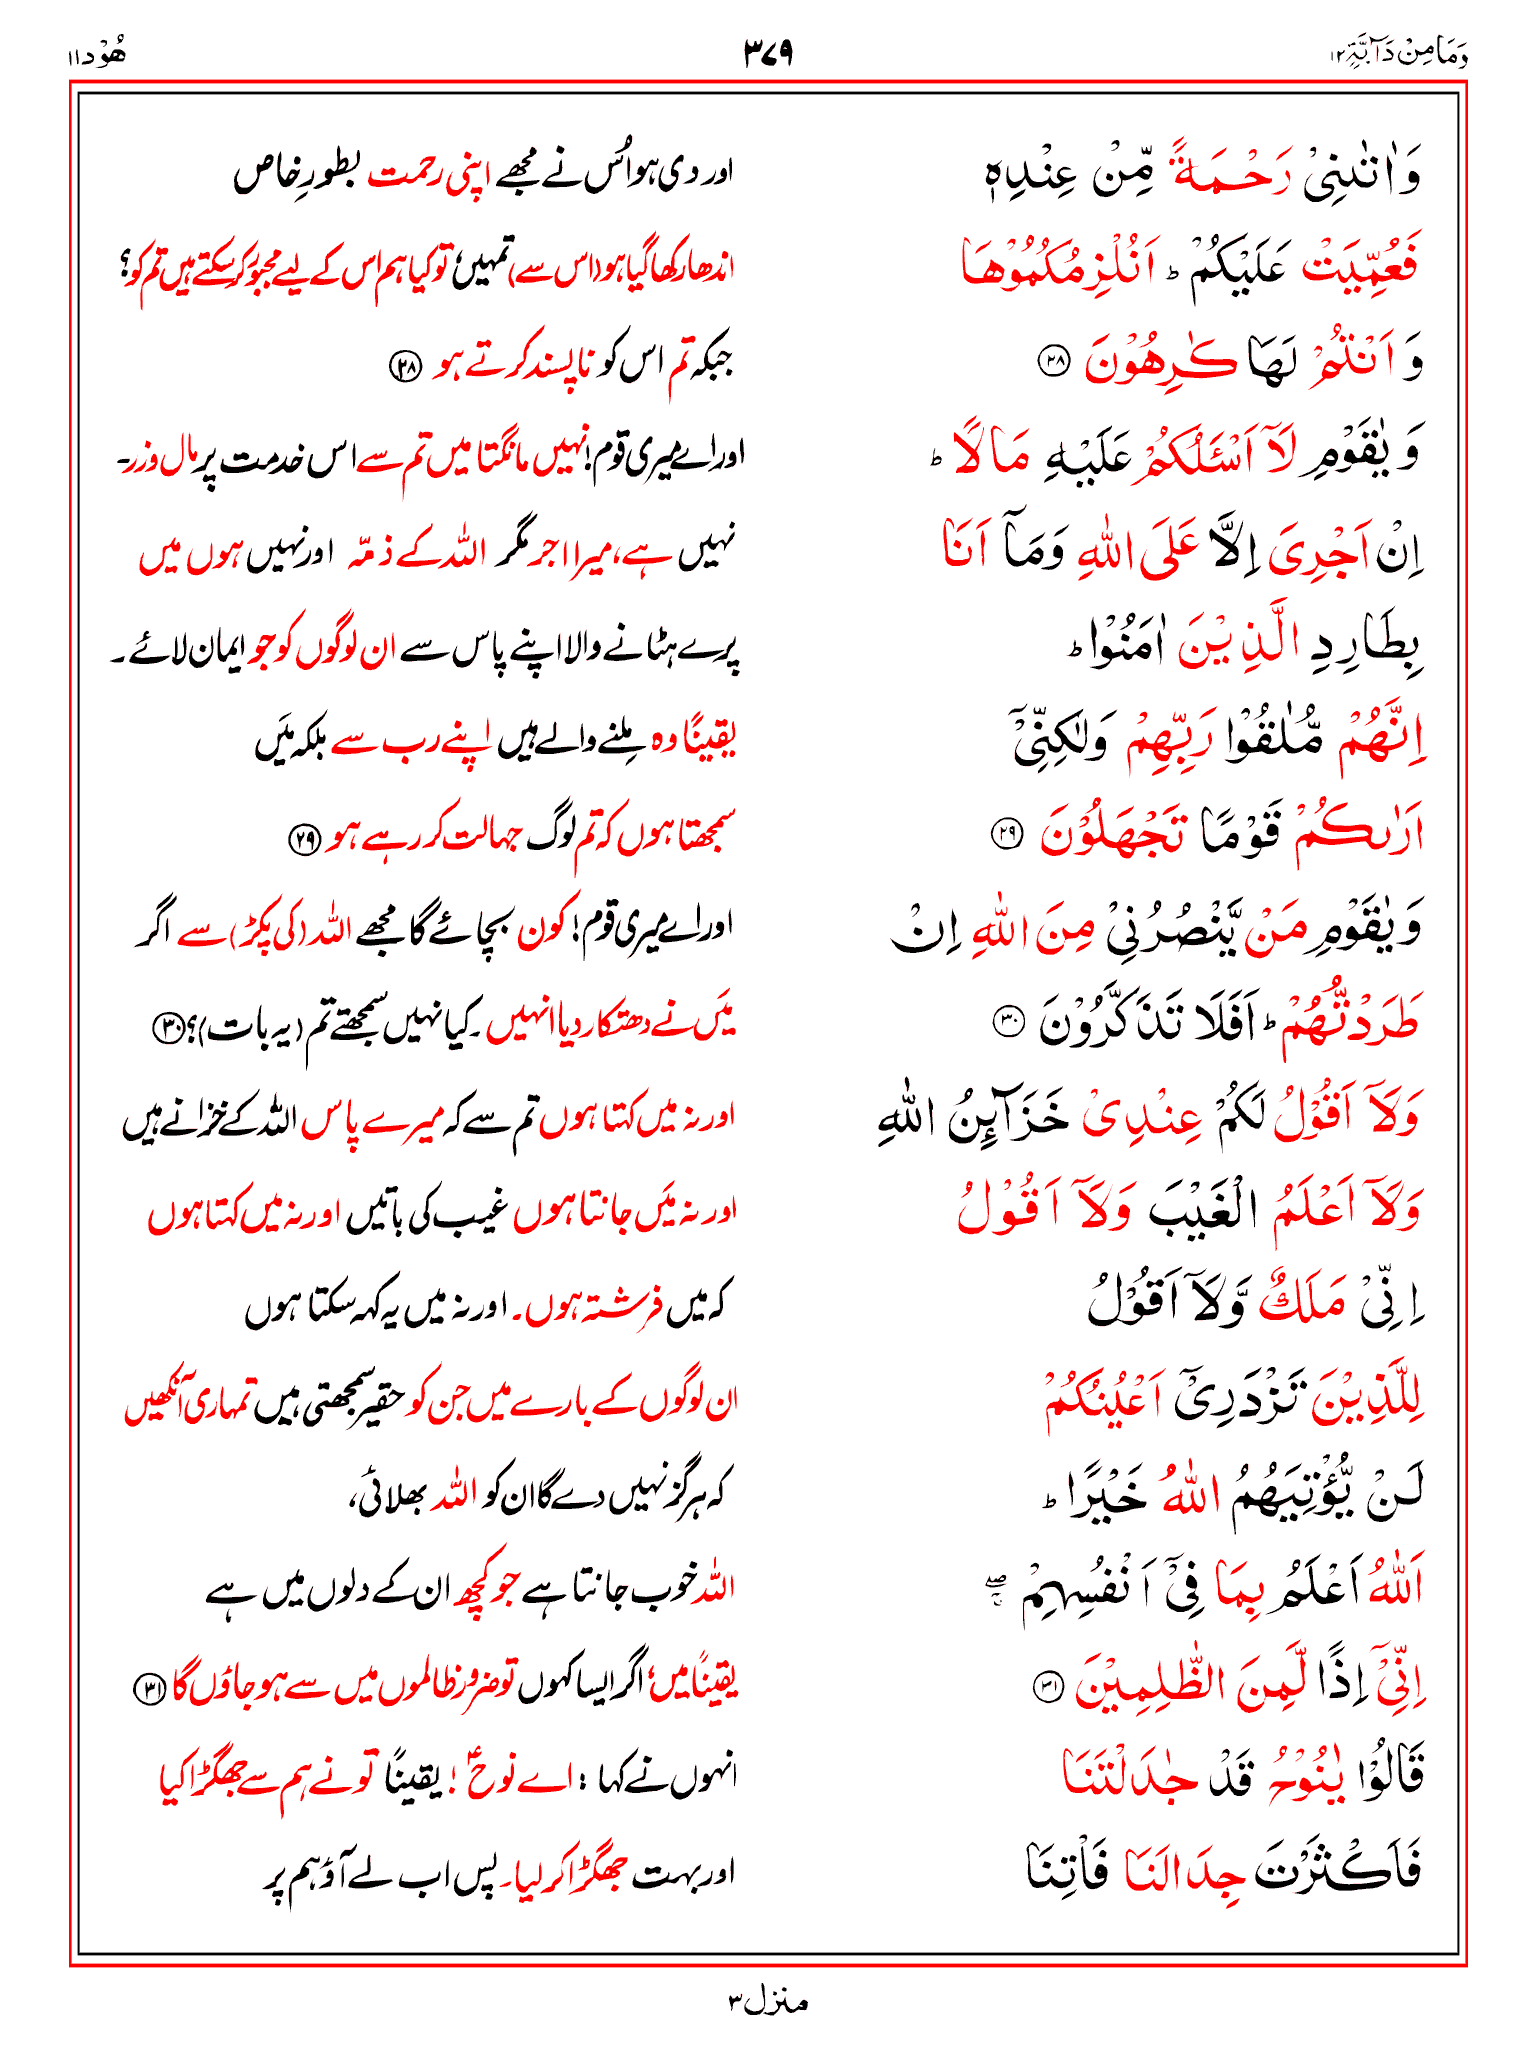 وَمَا مِنْ دَآبَّةٍ ١٢ ٣٧٩ هُوْد ١١
وَاٰتٰىنِیْ رَحْمَةً مِّنْ عِنْدِهٖ اور دی ہو اُس نے مجھے اپنی رحمت بطورِ خاص
فَعُمِّیَتْ عَلَیْكُمْ ؕ اَنُلْزِمُكُمُوْهَا اندھا رکھا گیا ہو (اس سے) تمہیں، تو کیا ہم اس کے لیے مجبُور کر سکتے ہیں تم کو؟
وَ اَنْتُمْ لَهَا كٰرِهُوْنَ ﴿٢٨﴾ جبکہ تم اس کو ناپسند کرتے ہو ﴿٢٨﴾
وَ یٰقَوْمِ لَاۤ اَسْـَٔلُكُمْ عَلَیْهِ مَالًا ؕ اور اے میری قوم! نہیں مانگتا میں تم سے اس خدمت پر مال و زر۔
اِنْ اَجْرِیَ اِلَّا عَلَی اللّٰهِ وَمَاۤ اَنَا نہیں ہے، میرا اجر مگر اللہ کے ذمّہ اور نہیں ہوں میں
بِطَارِدِ الَّذِیْنَ اٰمَنُوْا ؕ پرے ہٹانے والا اپنے پاس سے ان لوگوں کو جو ایمان لائے۔
اِنَّهُمْ مُّلٰقُوْا رَبِّهِمْ وَلٰكِنِّیْۤ یقینًا وہ مِلنے والے ہیں اپنے رب سے بلکہ مَیں
اَرٰىكُمْ قَوْمًا تَجْهَلُوْنَ ﴿٢٩﴾ سمجھتا ہوں کہ تم لوگ جہالت کر رہے ہو ﴿٢٩﴾
وَ یٰقَوْمِ مَنْ یَّنْصُرُنِیْ مِنَ اللّٰهِ اِنْ اور اے میری قوم! کون بچائے گا مجھے اللہ (کی پکڑ) سے اگر
طَرَدْتُّهُمْ ؕ اَفَلَا تَذَكَّرُوْنَ ﴿٣٠﴾ مَیں نے دھتکار دیا انہیں۔ کیا نہیں سمجھتے تم (یہ بات)؟ ﴿٣٠﴾
وَلَاۤ اَقُوْلُ لَكُمْ عِنْدِیْ خَزَآىِٕنُ اللّٰهِ اور نہ میں کہتا ہوں تم سے کہ میرے پاس اللہ کے خزانے ہیں
وَلَاۤ اَعْلَمُ الْغَیْبَ وَلَاۤ اَقُوْلُ اور نہ مَیں جانتا ہوں غیب کی باتیں اور نہ میں کہتا ہوں
اِنِّیْ مَلَكٌ وَّلَاۤ اَقُوْلُ کہ میں فرشتہ ہوں۔ اور نہ میں یہ کہہ سکتا ہوں
لِلَّذِیْنَ تَزْدَرِیْۤ اَعْیُنُكُمْ ان لوگوں کے بارے میں جن کو حقیر سمجھتی ہیں تمہاری آنکھیں
لَنْ یُّؤْتِیَهُمُ اللّٰهُ خَیْرًا ؕ کہ ہرگز نہیں دے گا ان کو اللہ بھلائی،
اَللّٰهُ اَعْلَمُ بِمَا فِیْۤ اَنْفُسِهِمْ ۖۚ اللہ خوب جانتا ہے جو کچھ ان کے دلوں میں ہے
اِنِّیْۤ اِذًا لَّمِنَ الظّٰلِمِیْنَ ﴿٣١﴾ یقینًا میں، اگر ایسا کہوں تو ضرور ظالموں میں سے ہو جاؤں گا ﴿٣١﴾
قَالُوْا یٰنُوْحُ قَدْ جٰدَلْتَنَا انہوں نے کہا : اے نوحؑ! یقینًا تو نے ہم سے جھگڑا کیا
فَاَكْثَرْتَ جِدَالَنَا فَاْتِنَا اور بہت جھگڑا کر لیا۔ پس اب لے آؤ ہم پر
منزل ٣